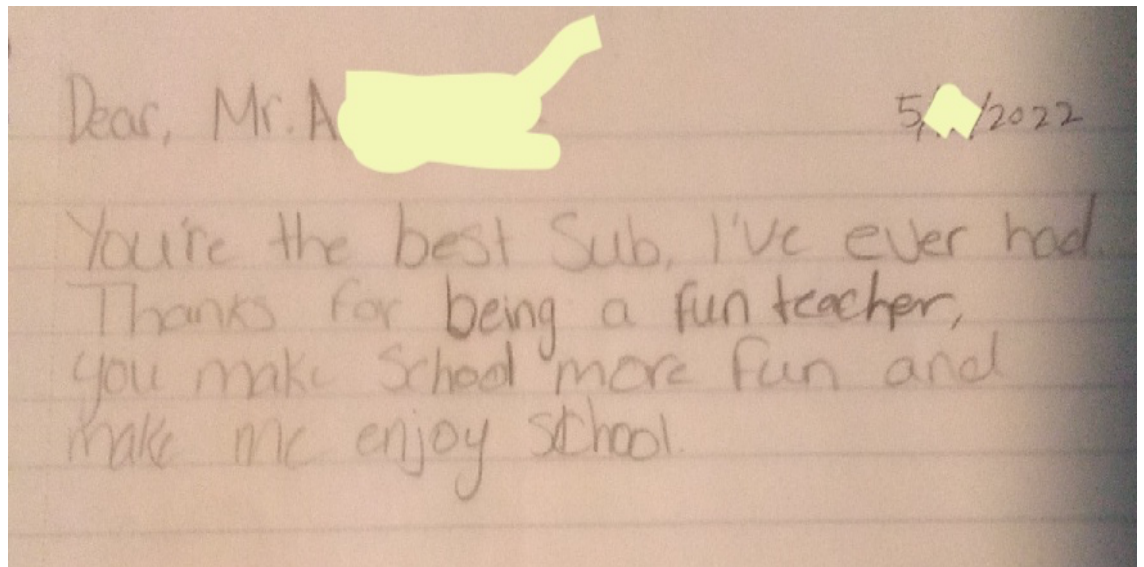 Dear, Mr. A 5/ /2022
You're the best Sub, I've ever had.
Thanks for being a fun teacher,
you make School more fun and
make me enjoy school.